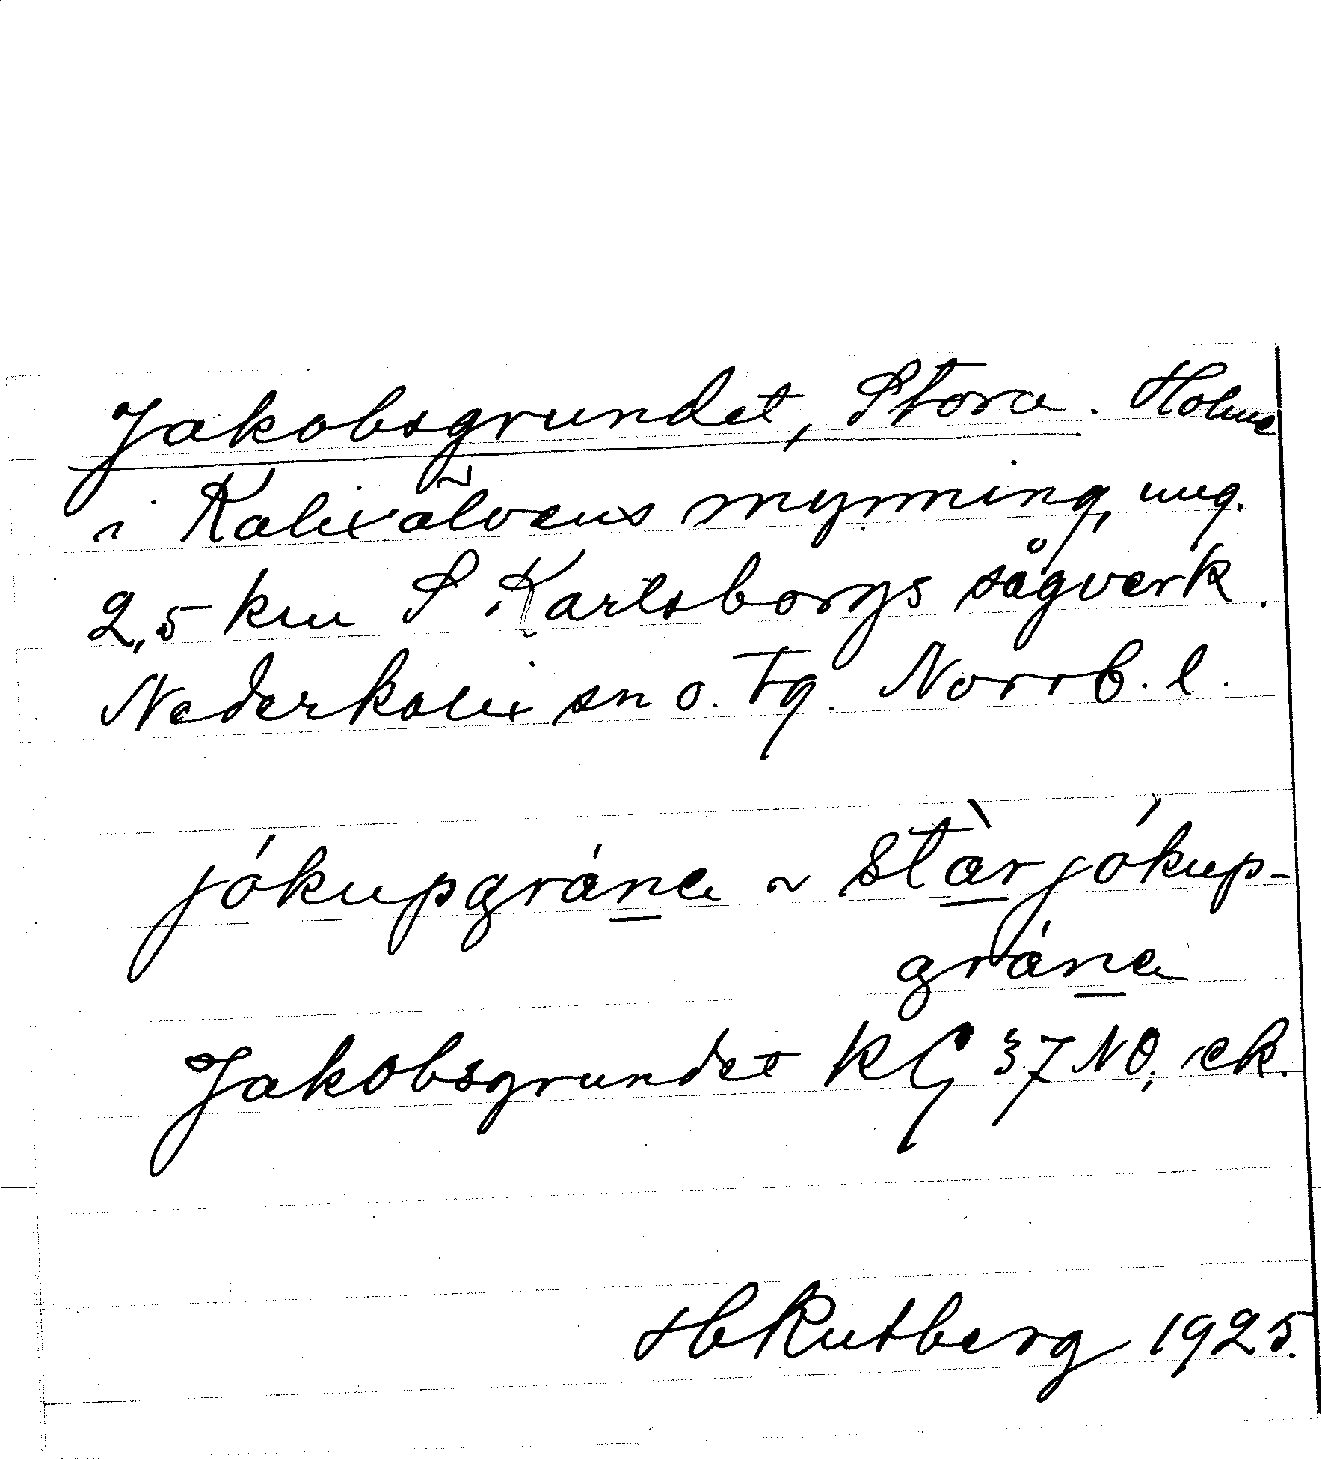 Jakobsgrundet, Stora. Holme
i Kalixälvens mynning, ung.
2,5 km S Karlsborgs sågverk.
Nederkalix sn o. tg. Norrb. l.
jókupgráne ~ stàrjókup-
gráne
Jakobsgrundet KG 37 NO, ek.
H Rutberg 1925.